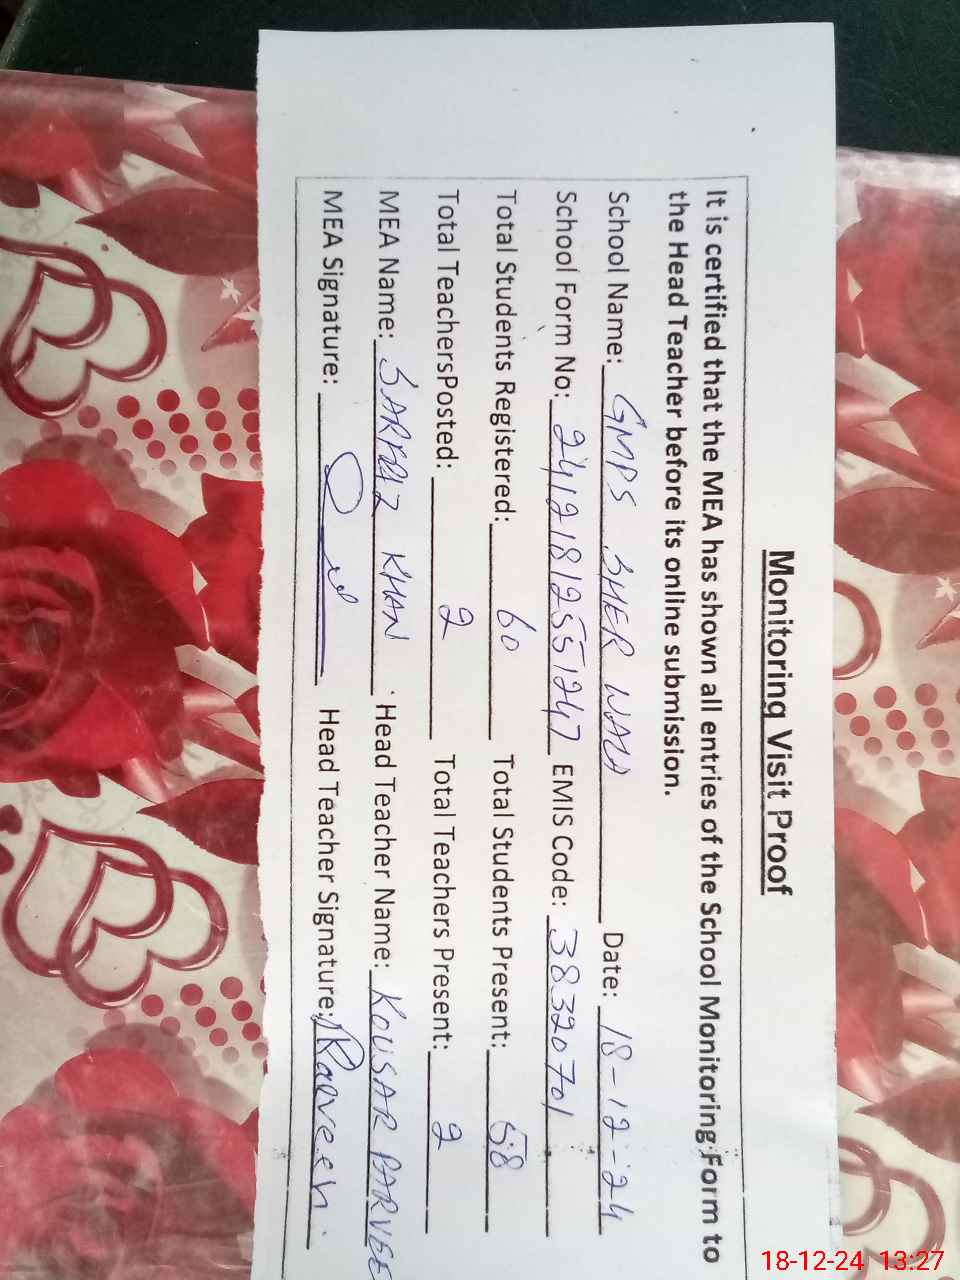 Monitoring Visit Proof
It is certified that the MEA has shown all entries of the School Monitoring Form to
the Head Teacher before its online submission.
School Name: GMPS SHER WALA Date: 18-12-24
School Form No: 24121812551247 EMIS Code: 38320701
Total Students Registered: 60 Total Students Present: 58
Total TeachersPosted: 2 Total Teachers Present: 2
MEA Name: SARFRAZ KHAN Head Teacher Name: KOUSAR PARVEE
MEA Signature: Head Teacher Signature: Parveen.
18-12-24 13:27